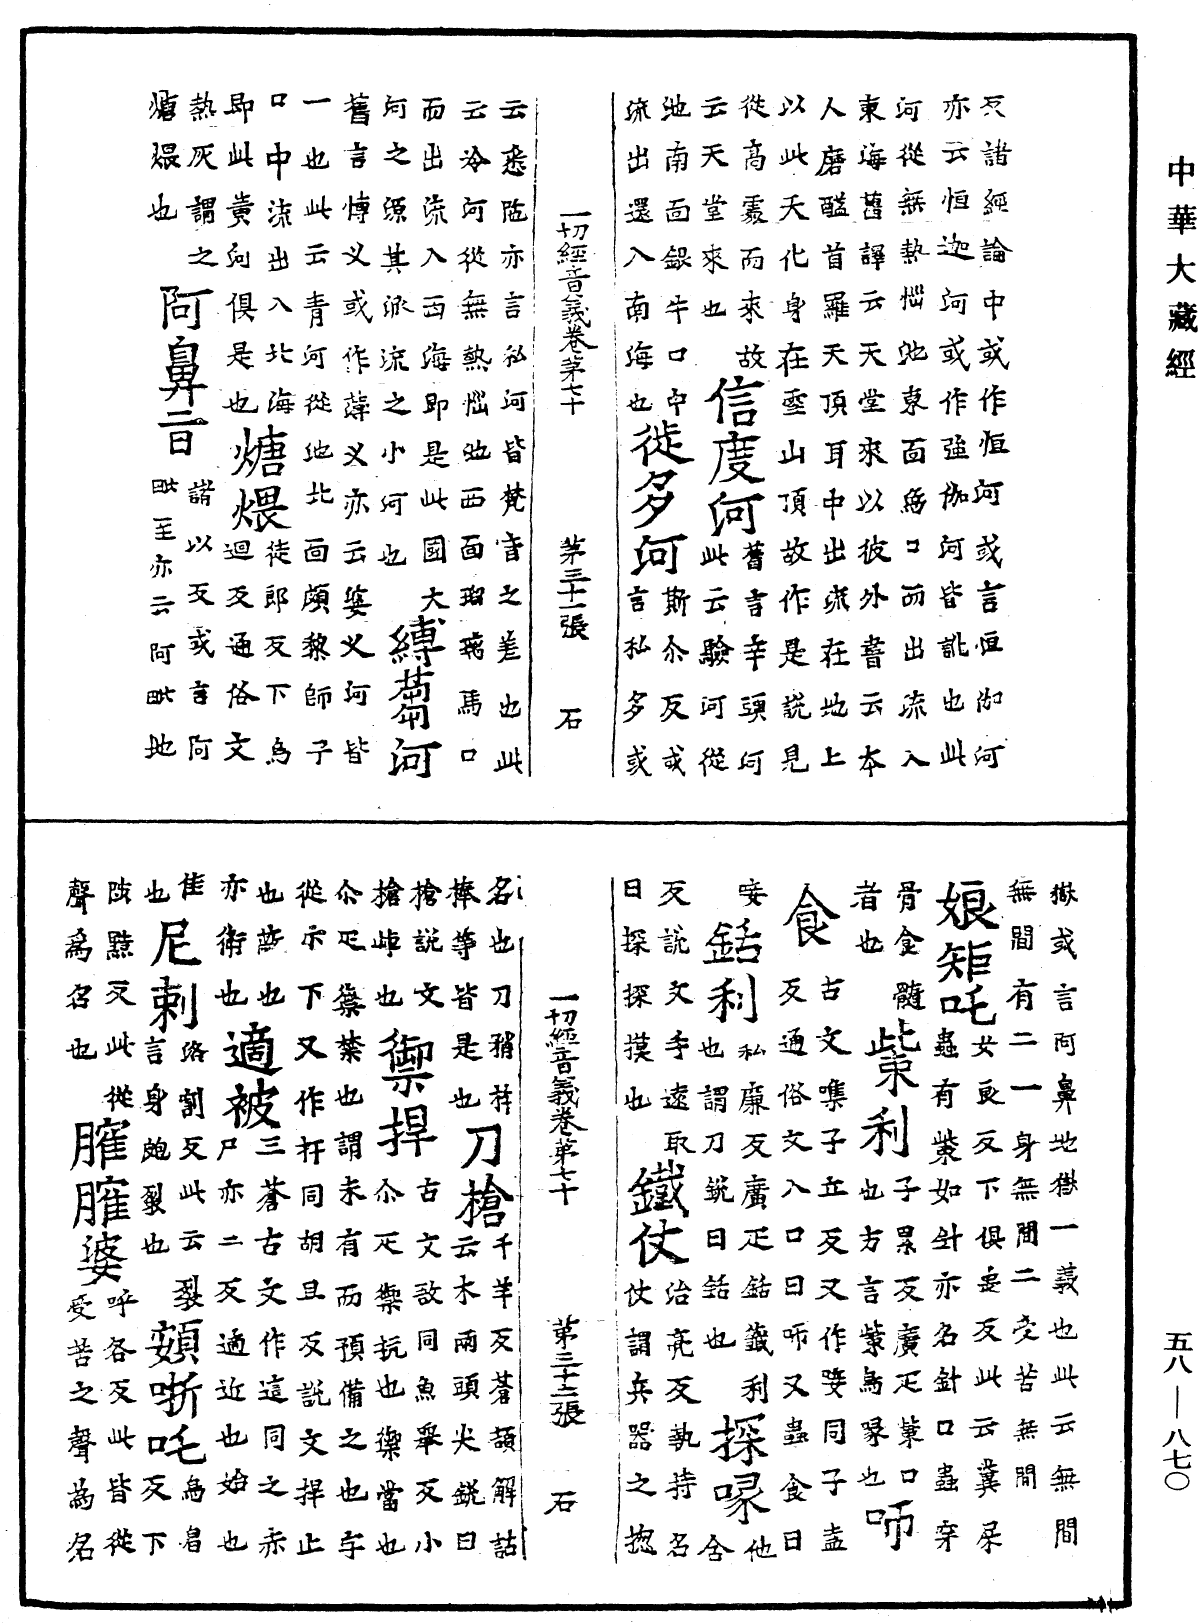 中華大藏經
反諸經論中或作恒河或言恒伽河
亦云恒迦河或作強伽河皆訛也此
河從無熱惱池東面爲口而出流入
東海舊譯云天堂來以彼外書云本
人磨醯首羅天頂耳中出流在地上
以此天化身在雪山頂故作是說見
從高處而來故
云天堂來也信度河舊言辛頭河此云驗河從
池南面銀牛口中
流出還入南海也徙多河斯尒反或言私多或
一切經音義卷第七十 第三十一張 石
云悉陁亦言私河皆梵音之差也此
云冷河從無熱惱池西面瑠璃馬口
而出流入西海即是此國大
河之源其派流之小河也縛芻河
舊言愽义或作薄义亦云婆义河皆
一也此云青河從池北面頗黎師子
口中流出入北海
即此黄河俱是也煻煨徒郎反下烏迴反通俗文
熱灰謂之
煻煨也阿鼻旨諸以反或言阿毗至亦云阿毗地
獄或言阿鼻地獄一義也此云無間
無間有二一身無間二受苦無間
娘矩吒女良反下俱禹反此云糞屎蟲有㭰如針亦名針口蟲穿
骨食髓
者也㭰利子累反廣疋㭰口也方言㭰鳥喙也咂
食古文噍子立反又作唼同子盍反通俗文入口曰咂又蟲食曰
唼
銛利私廉反廣疋銛籤利也謂刀銳曰銛也探啄他含
反說文手遠取
曰探探摸也鐵仗治亮反執持名仗謂兵器之揔
一切經音義卷第七十 第三十二張 石
名也刀矟桙
棒等皆是也刀槍千羊反蒼頡解詁云木兩頭尖銳曰
槍說文
槍㟁也禦捍古文敔同魚舉反小尒疋禦抗也禦當也
尒疋禦禁也謂未有而預備之也字
從示下又作扞同胡旦反說文捍止
也蔽也
亦衛也適被三蒼古文作這同之赤尸亦二反適近也始也
佳
也尼剌洛割反此云裂言身皰裂也頞哳吒烏曷反下
陟黠反此從
聲爲名也臛臛婆呼各反此皆從受苦之聲爲名
五八—八七〇